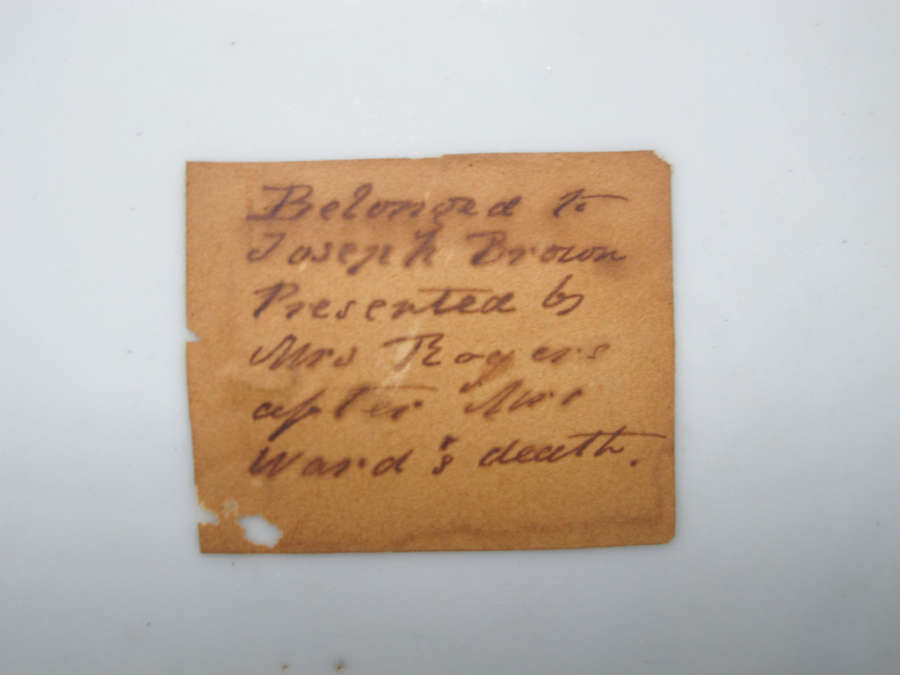 Belonged to
Joseph Brown
Presented by
Mrs Rogers
after Mrs
Ward's death.